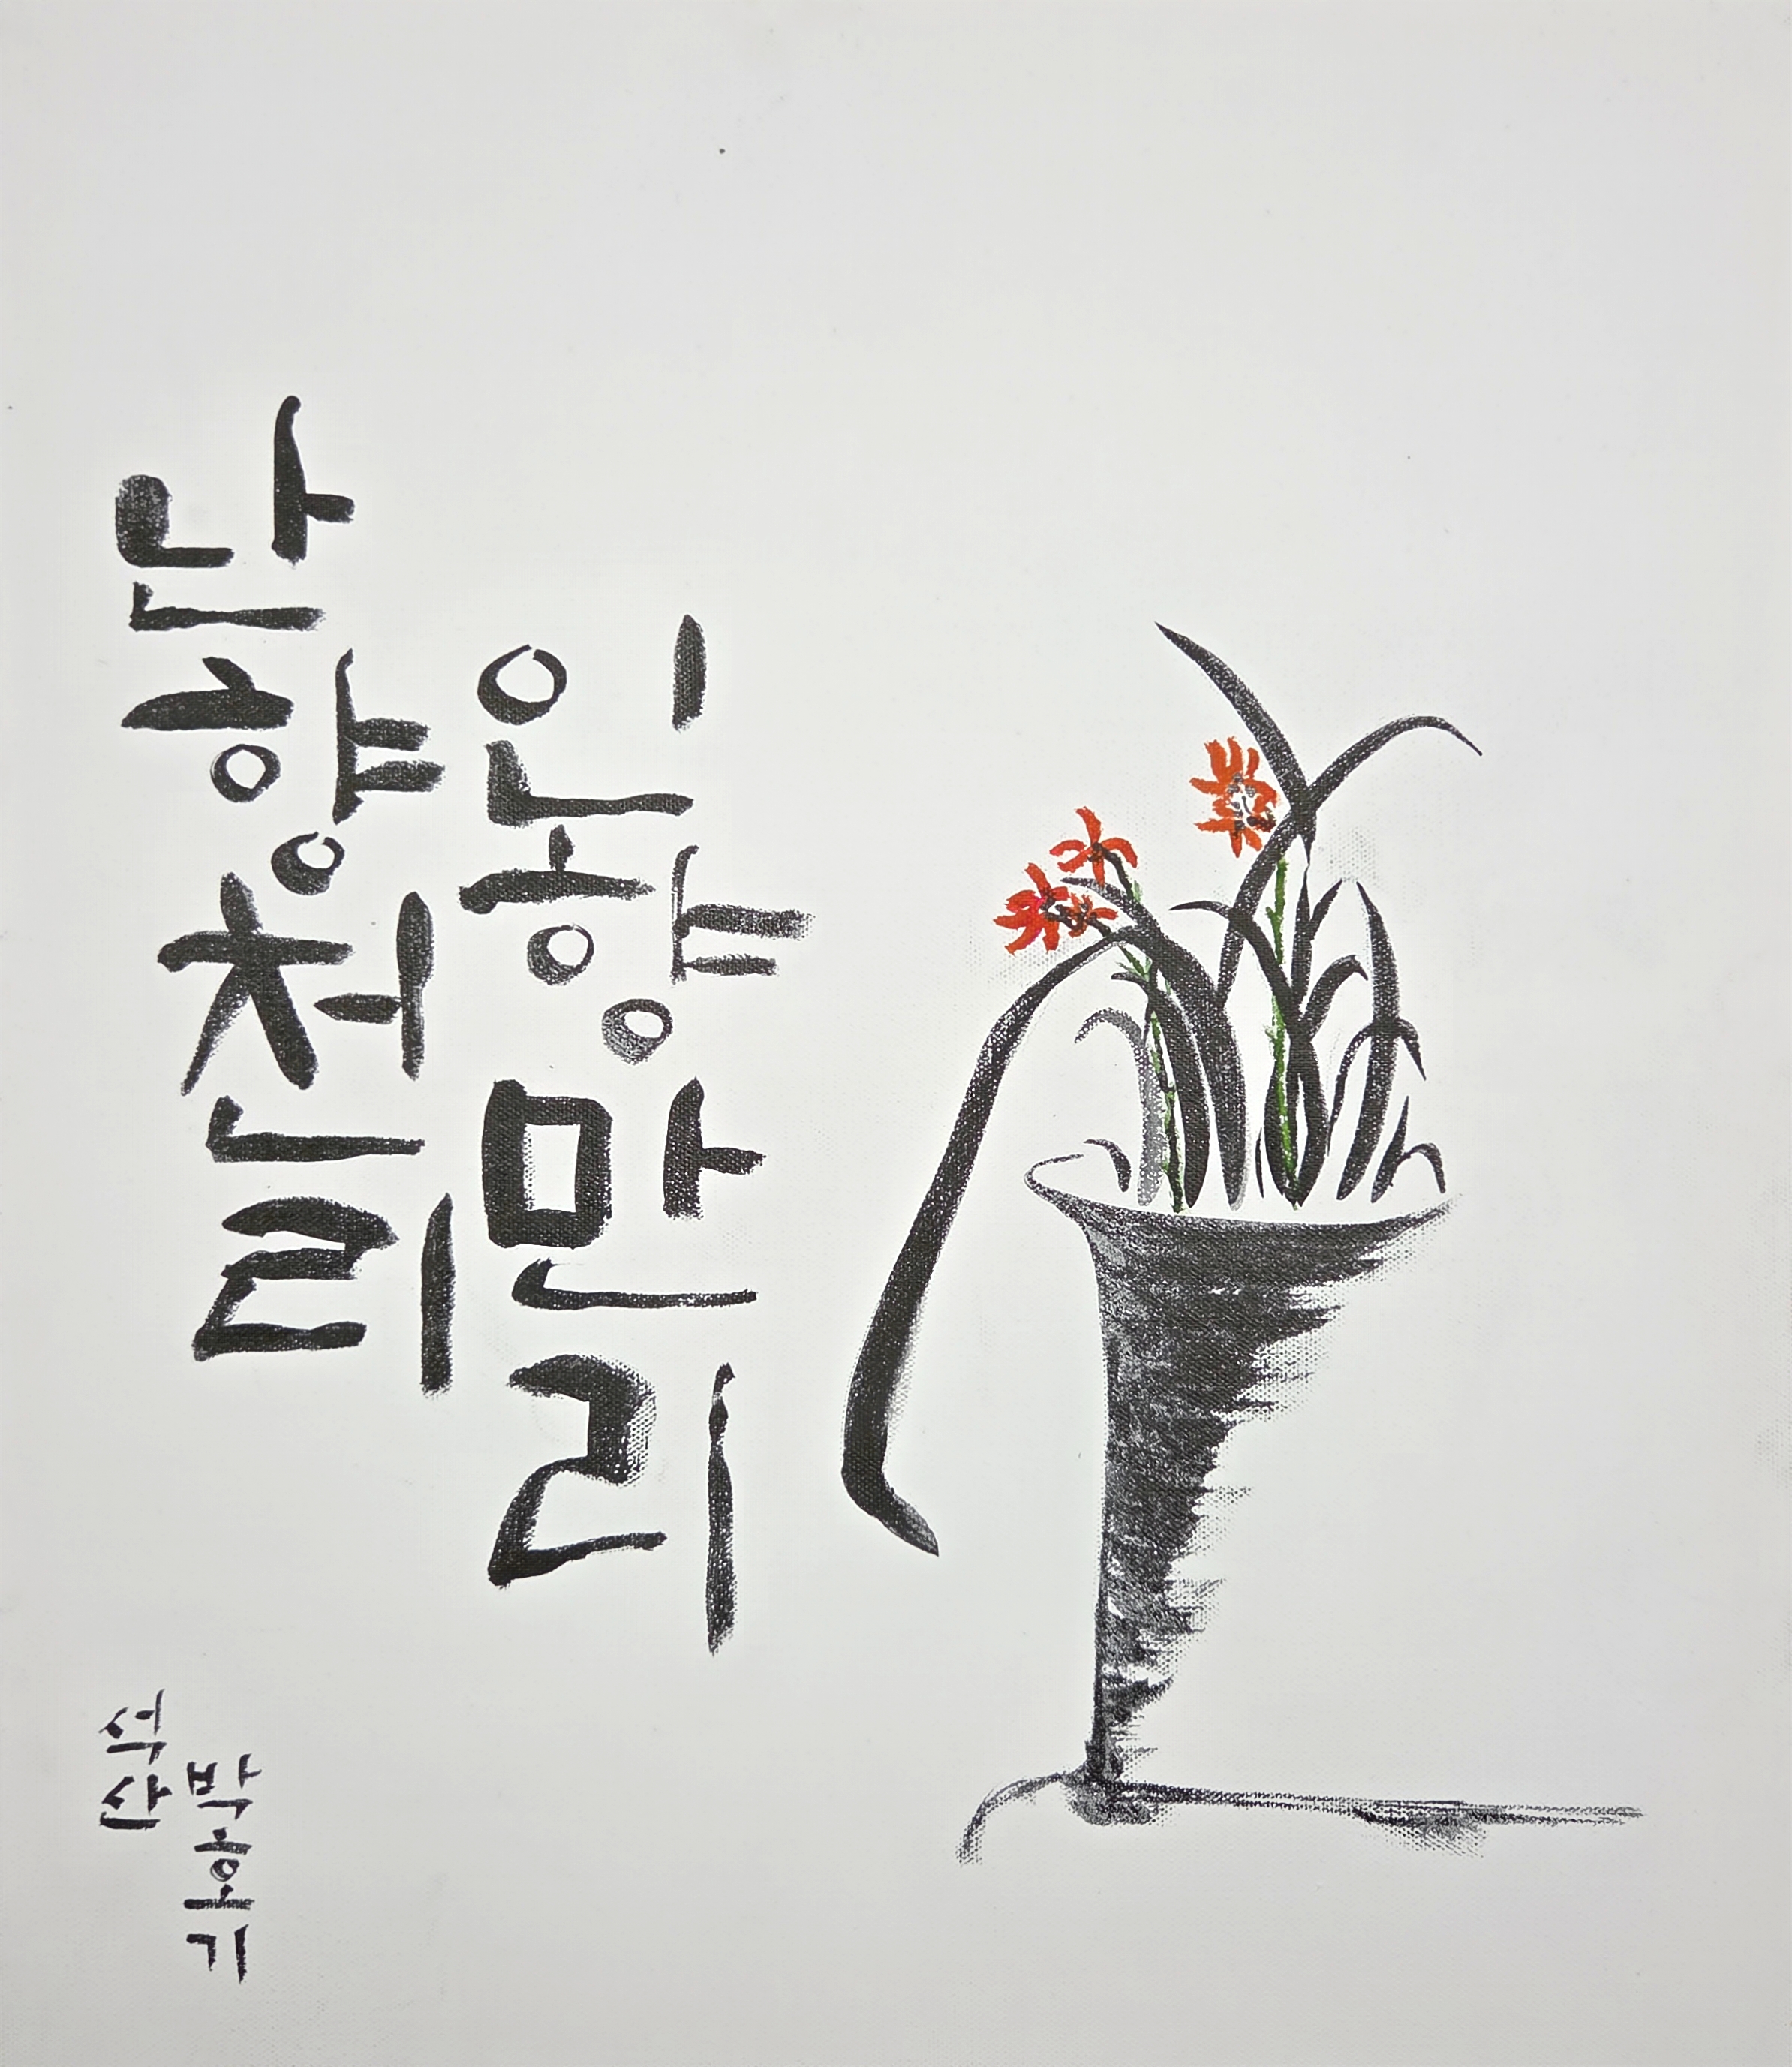 난향천리
인향만리
석산
박호기